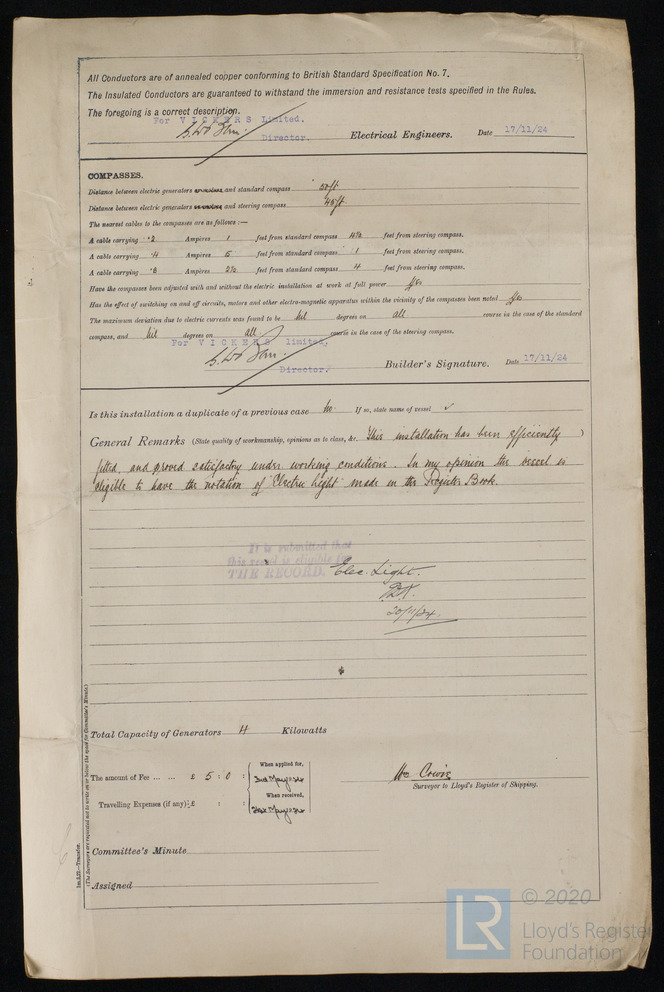 All Conductors are of annealed copper conforming to British Standard Specification No. 7.
The Insulated Conductors are guaranteed to withstand the immersion and resistance tests specified in the Rules.
The foregoing is a correct description.
For VICKERS Limited.
Director. Electrical Engineers. Date 17/11/24
COMPASSES.
Distance between electric generators and standard compass 50ft
Distance between electric generators and steering compass 45ft
The nearest cables to the compasses are as follows:—
A cable carrying .2 Ampères 1 feet from standard compass feet from steering compass.
A cable carrying .4 Ampères 5 feet from standard compass 1 feet from steering compass.
A cable carrying Ampères feet from standard compass 4 feet from steering compass.
Have the compasses been adjusted with and without the electric installation at work at full power Yes
Has the effect of switching on and off circuits, motors and other electro-magnetic apparatus within the vicinity of the compasses been noted Yes
The maximum deviation due to electric currents was found to be Nil degrees on all course in the case of the standard
compass, and Nil degrees on all course in the case of the steering compass.
For VICKERS Limited,
Director. Builder's Signature. Date 17/11/24
Is this installation a duplicate of a previous case No. If so, state name of vessel ✓
General Remarks (State quality of workmanship, opinions as to class, &c. This installation has been efficiently )
fitted, and proved satisfactory under working conditions. In my opinion the vessel is
eligible to have the notation of "Electric Light" made in the Register Book.
It is submitted that
this vessel is eligible for
THE RECORD. Elec. Light.
20/11/24.
Total Capacity of Generators 4 Kilowatts
The amount of Fee ... ... £ 5 : 0 :
When applied for,
When received,
Travelling Expenses (if any) £ : :
Surveyor to Lloyd's Register of Shipping.
Committee's Minute
Assigned
(The Surveyors are requested not to write on or below the space for Committee's Minute.)
—Transfer.
LR © 2020
Lloyd's Register
Foundation